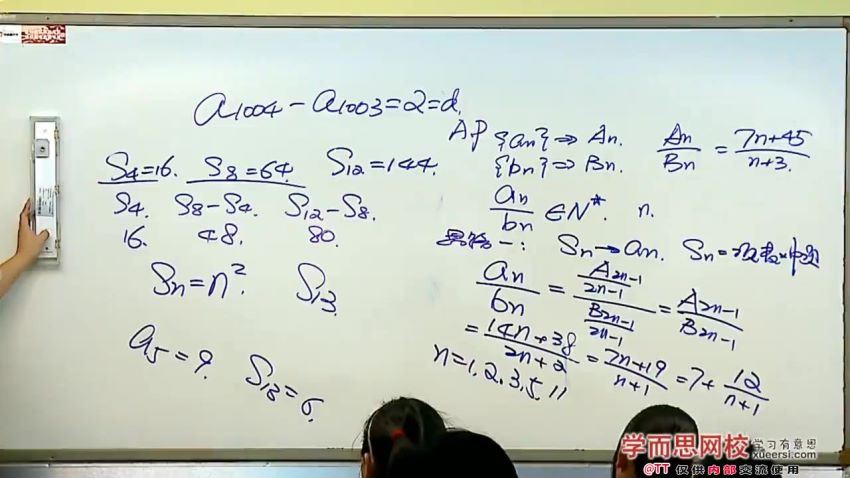 a1004 - a1003 = 2 = d.
S4 = 16. S8 = 64. S12 = 144.
S4. S8 - S4. S12 - S8.
16. 48. 80.
Sn = n². S13
a5 = 9.
AP {an} ⇒ An. An/Bn = (7n+45)/(n+3)
{bn} ⇒ Bn.
an/bn ∈ N*. n.
一: Sn → an. Sn =
an/bn = (A2n-1/(2n-1))/(B2n-1/(2n-1)) = A2n-1/B2n-1
= (14n+38)/(2n+2) = (7n+19)/(n+1) = 7 + 12/(n+1)
n = 1, 2, 3, 5, 11
学而思网校
学习有意思
xueersi.com
@TT 仅供内部交流使用